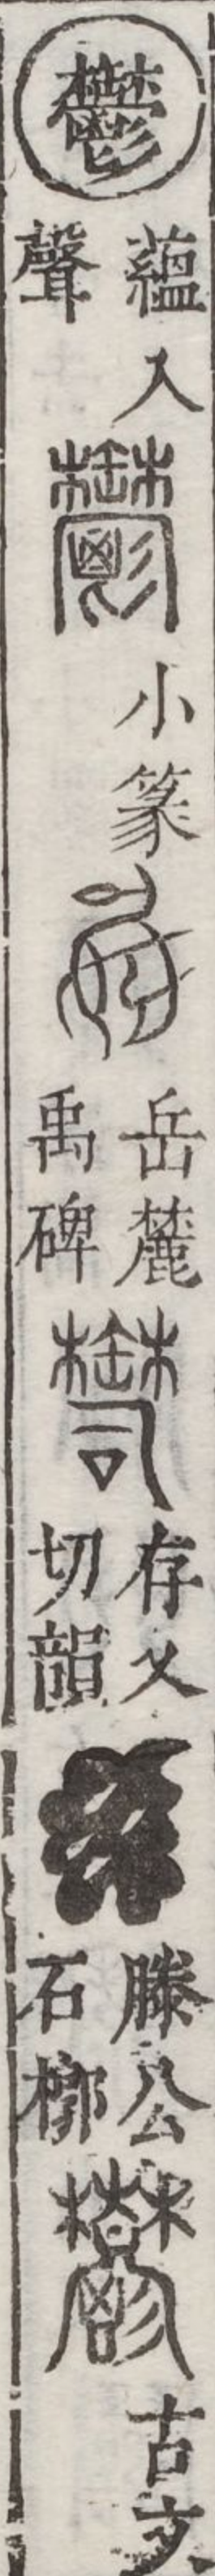 鬱
蘊入
聲
小篆
岳麓
禹碑
存乂
切韻
滕公
石槨
古文